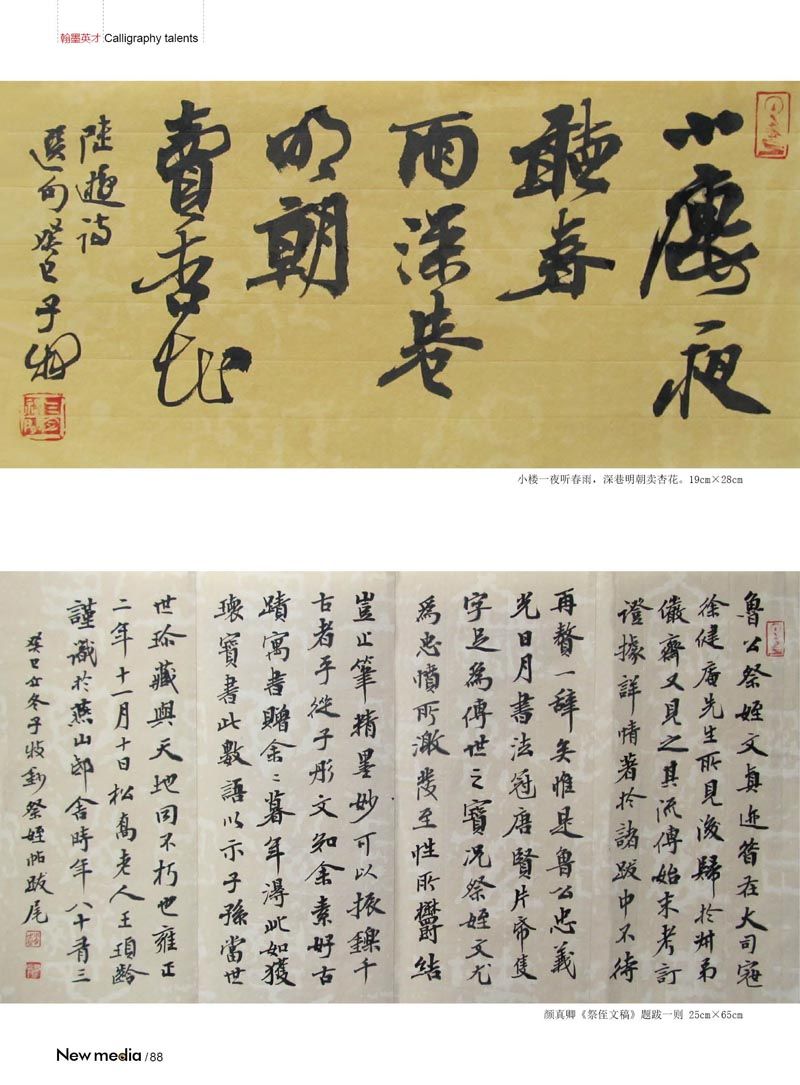 翰墨英才 Calligraphy talents
小廔夜
聽春
雨深巷
明朝
賣杏花
陸遊诗
選句癸巳子牧
小楼一夜听春雨，深巷明朝卖杏花。19cm×28cm
魯公祭姪文真迹昔在大司寇
徐健庵先生所見後歸於卅弟
儼齋又見之其流傳始末考訂
證據詳情著於諸跋中不待
再贅一辞矣惟是魯公忠義
光日月書法冠唐賢片帋隻
字足為傳世之寶況祭姪文尤
為忠憤所激發至性所欝結
豈止筆精墨妙可以振鑠千
古者乎從子彤文知余素好古
蹟寓書贈余〻暮年得此如獲
瓌寶書此數語以示子孫當世
世珎藏與天地同不朽也雍正
二年十一月十日松喬老人王頊齡
謹識於燕山邸舍時年八十有三
癸巳立冬子牧鈔祭姪帖跋尾
颜真卿《祭侄文稿》题跋一则 25cm×65cm
New media / 88